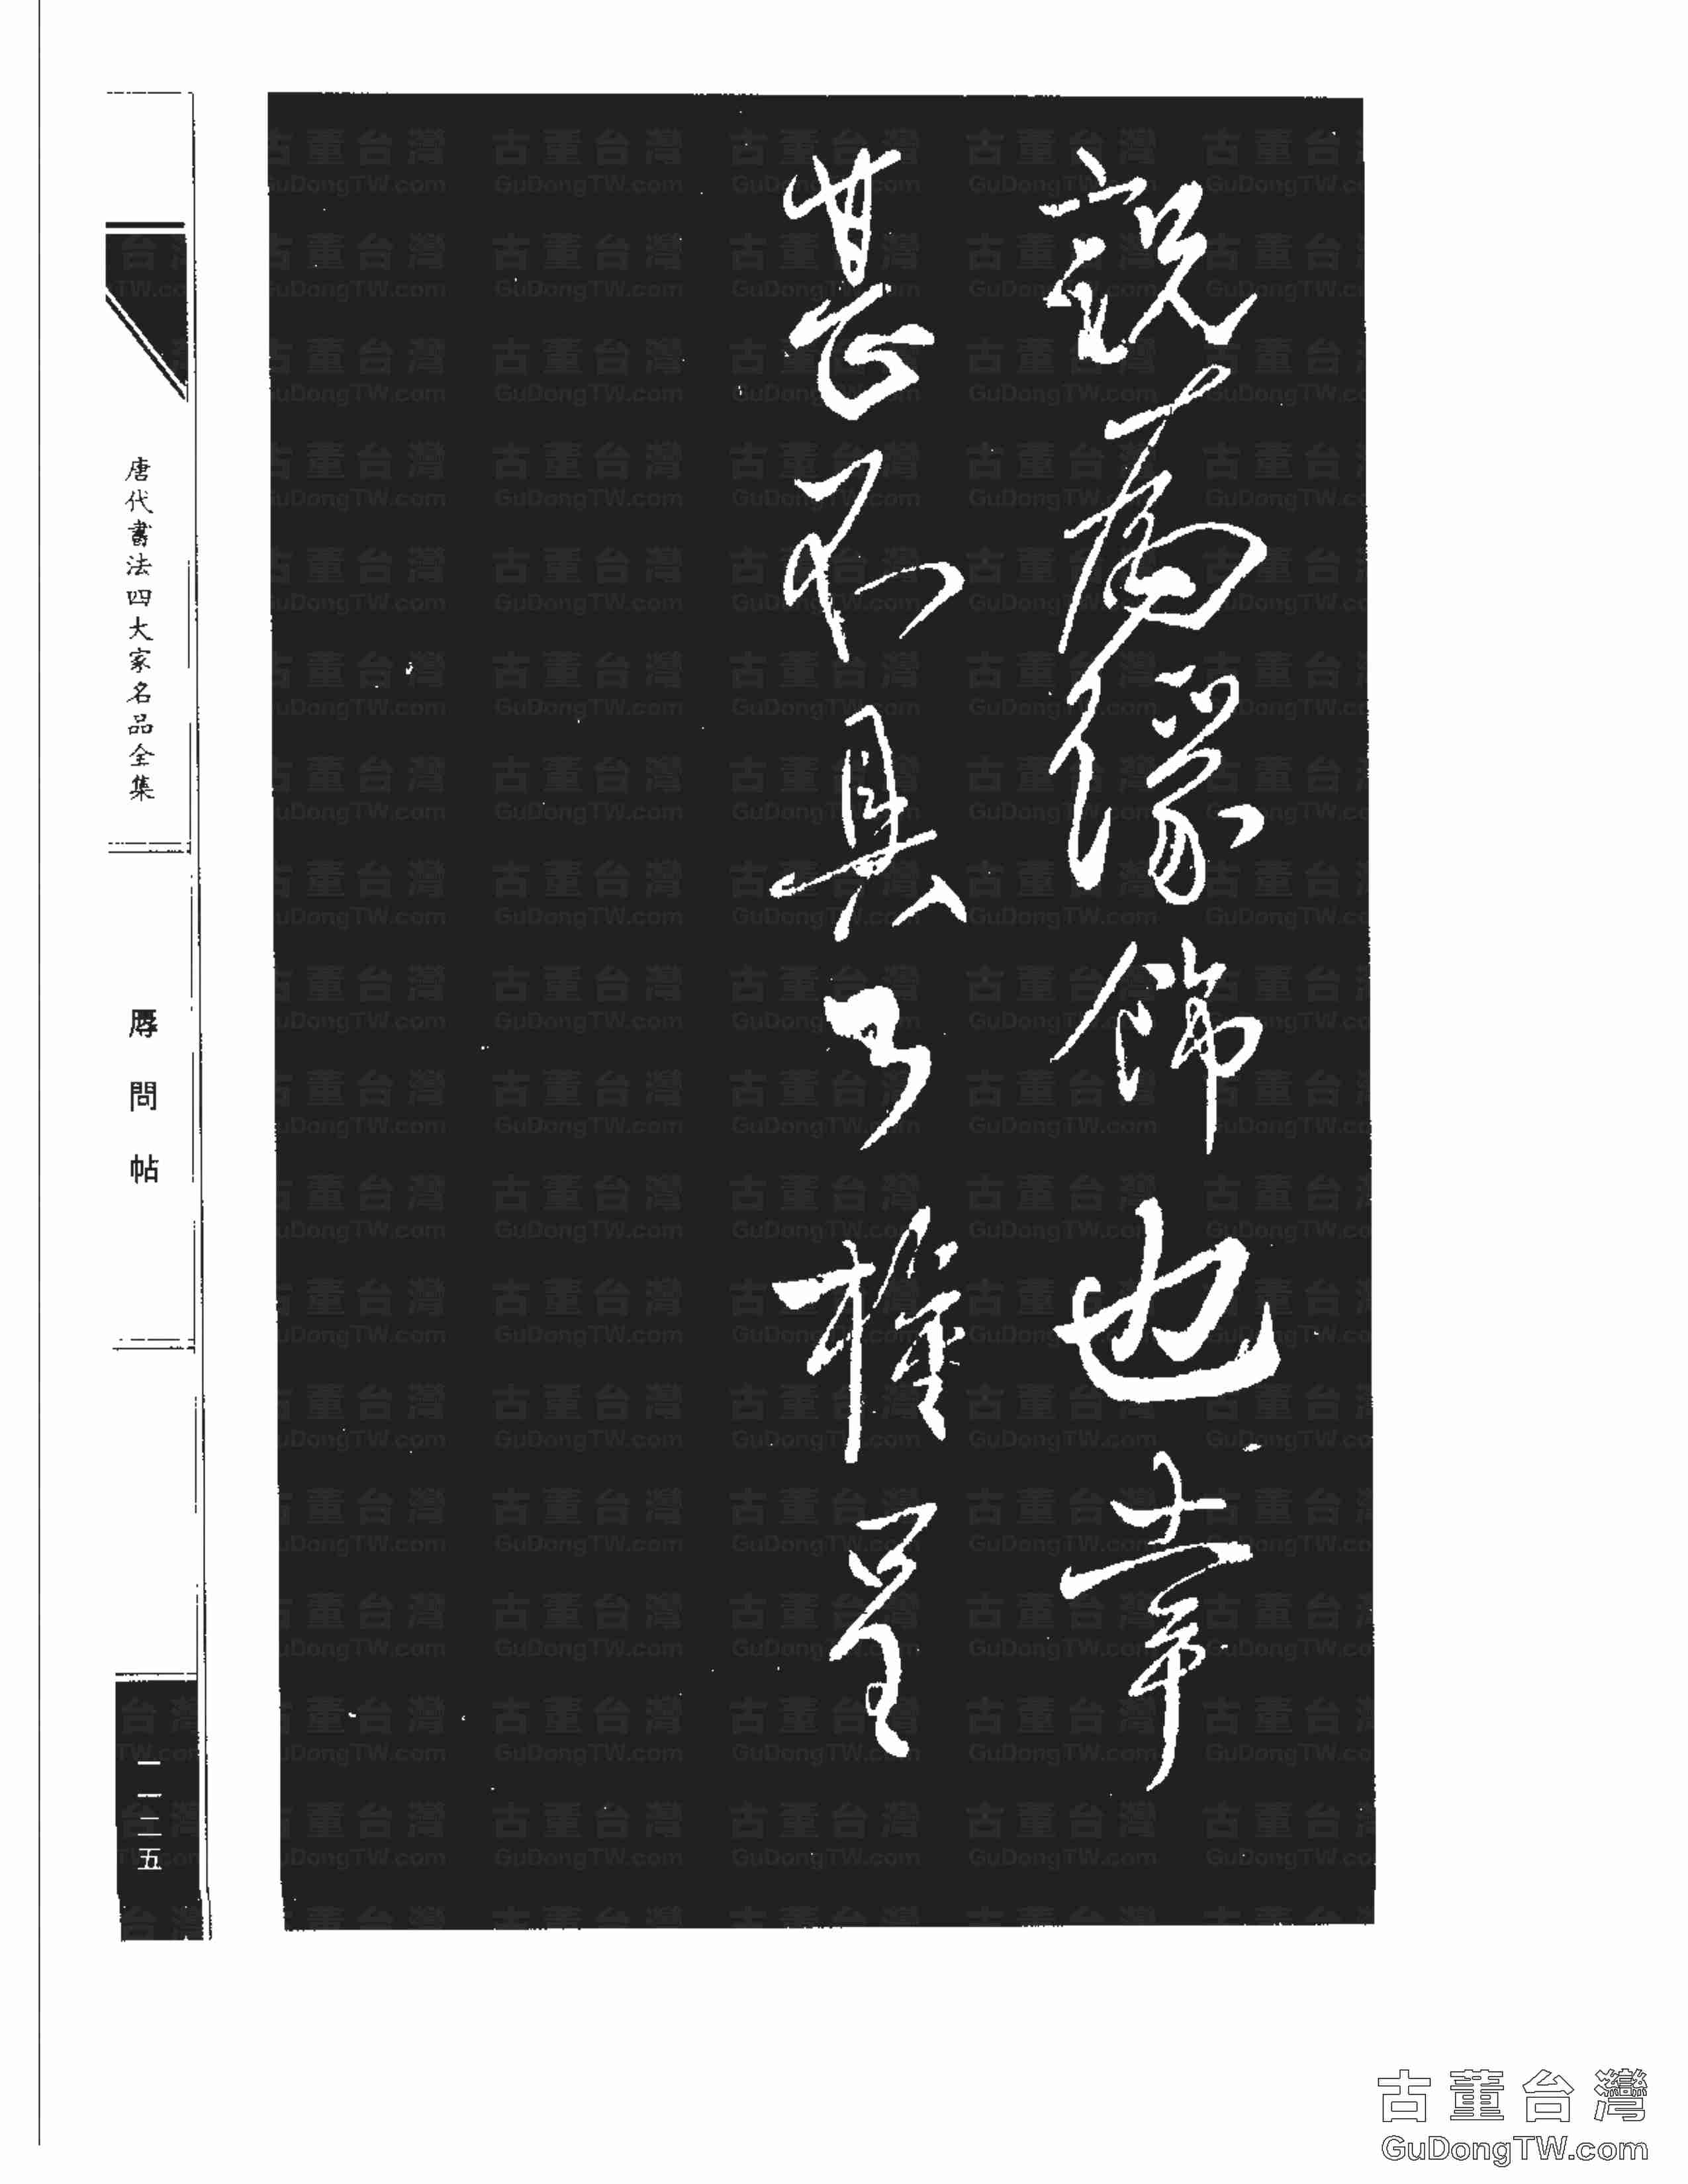 説為緣飾也幸
甚不具公權呈
唐代書法四大家名品全集
辱問帖
一一二五
古董台灣
GuDongTW.com